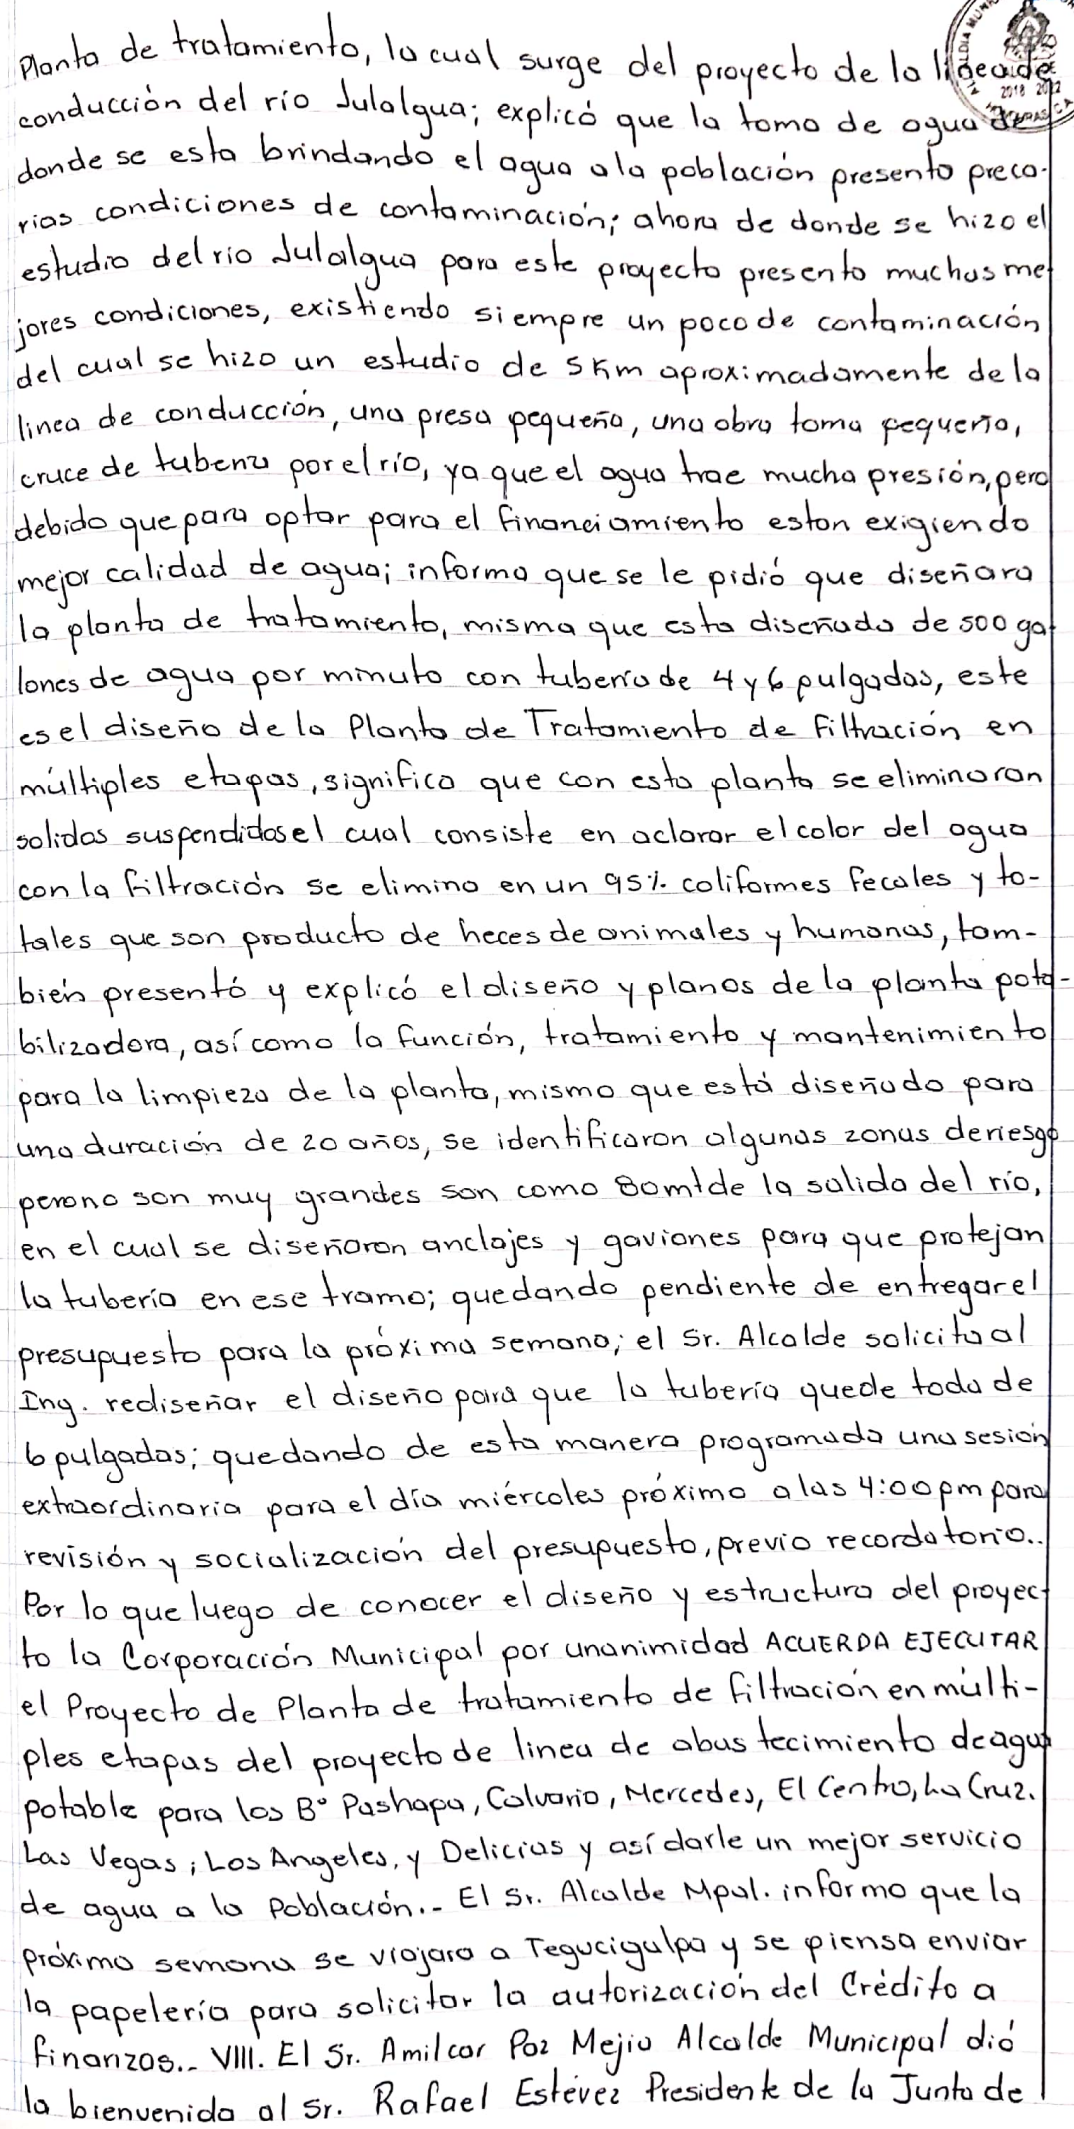 Planta de tratamiento, la cual surge del proyecto de la linea de
conducción del río Julalgua; explicó que la toma de agua de
donde se esta brindando el agua a la población presento preca-
rias condiciones de contaminación; ahora de donde se hizo el
estudio del río Julalgua para este proyecto presento muchas me
jores condiciones, existiendo siempre un poco de contaminación
del cual se hizo un estudio de 5 Km aproximadamente de la
linea de conducción, una presa pequeña, una obra toma pequeña,
cruce de tuberia por el río, ya que el agua trae mucha presión, pero
debido que para optar para el financiamiento estan exigiendo
mejor calidad de agua; informa que se le pidió que diseñara
la planta de tratamiento, misma que esta diseñada de 500 ga
lones de agua por minuto con tubería de 4 y 6 pulgadas, este
es el diseño de la Planta de Tratamiento de filtración en
múltiples etapas, significa que con esta planta se eliminaran
solidos suspendidos el cual consiste en aclarar el color del agua
con la filtración se elimino en un 95% coliformes fecales y to-
tales que son producto de heces de animales y humanas, tam-
bién presentó y explicó el diseño y planos de la planta pota-
bilizadora, así como la función, tratamiento y mantenimiento
para la limpieza de la planta, mismo que está diseñado para
una duración de 20 años, se identificaron algunas zonas de riesgo
pero no son muy grandes son como 80mt de la salida del río,
en el cual se diseñaron anclajes y gaviones para que protejan
la tubería en ese tramo; quedando pendiente de entregar el
presupuesto para la próxima semana; el Sr. Alcalde solicita al
Ing. rediseñar el diseño para que la tubería quede toda de
6 pulgadas; quedando de esta manera programada una sesión
extraordinaria para el día miércoles próximo a las 4:00 pm para
revisión y socialización del presupuesto, previo recordatorio..
Por lo que luego de conocer el diseño y estructura del proyec
to la Corporación Municipal por unanimidad ACUERDA EJECUTAR
el Proyecto de Planta de tratamiento de filtración en múlti-
ples etapas del proyecto de linea de abastecimiento de agua
potable para los B° Pashapa, Calvario, Mercedes, El Centro, La Cruz.
Las Vegas; Los Angeles, y Delicias y así darle un mejor servicio
de agua a la Población.- El Sr. Alcalde Mpal. informo que la
próxima semana se viajara a Tegucigalpa y se piensa enviar
la papelería para solicitar la autorización del Crédito a
finanzas.. VIII. El Sr. Amilcar Paz Mejia Alcalde Municipal dió
la bienvenida al Sr. Rafael Estévez Presidente de la Junta de
2018 2022